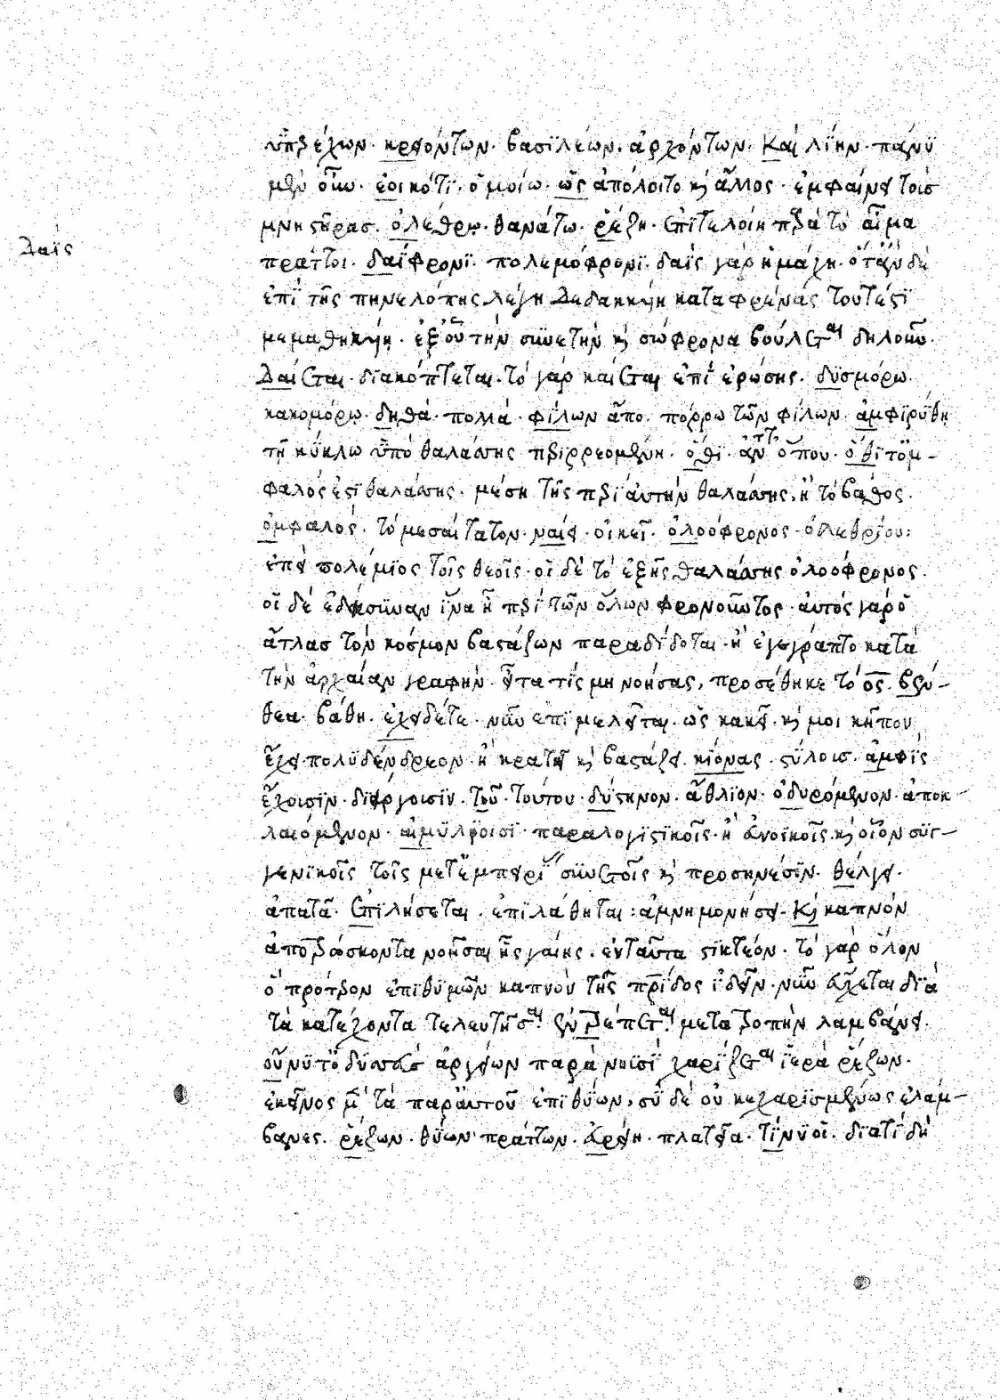 Δαΐς
ὑπερέχων. κρειόντων. βασϊλέων. ἀρχόντων. Καὶ λΐην. πάνυ
μὲν οὖν. ἐοικότϊ. ὁμοίω. ὡς ἀπόλοιτο κ ἄλλος. ἐμφαίνει τοῖσ
μνηστῆρασ. ὀλέθρω. θανάτω. ῥέζη. ἐπϊτελοίη περὰ τὸ αἷμα
πράττοι. δαΐφρονϊ. πολεμόφρονϊ. δαῒς γὰρ ἡ μάχη. ὅταν δὲ
ἐπῒ τῆς πηνελόπης λέγη δεδαηκυίη κατα φρένας τουτέστϊ
μεμαθηκυίη. ἐξ οὗ τὴν συνετὴν κ σώφρονα βούλεται δηλοῦν.
Δαίεται. διακόπτεται. τὸ γὰρ καίεται ἐπῒ ἐρώσης. δϋσμόρω.
κακομόρω. δηθά. πολλά. φίλων ἄπο. πόρρω τῶν φίλων. ἀμφϊρύθη
τῆ κύκλω ὑπὸ θαλάσσης περϊρρεομένη. ὅθϊ. ἀντῒ ὅπου. ὅθϊ τ ὀμ-
φαλός ἐστϊ θαλάσσης. μέση τῆς περῒ αὐτὴν θαλάσσης. ἢ τὸ βάθος.
ὀμφαλός. τὸ μεσαίτατον. ναίει. οἰκεῖ. ὀλοόφρονος. ὀλεθρίου:
ἐπεὶ πολέμϊος τοῖς θεοῖς. οἱ δὲ τὸ ἑξῆς θαλάσσης ὀλοόφρονος.
οἱ δὲ ἐδάσϋναν ἵνα ἦ περῒ τῶν ὅλων φρονοῦντος. αὐτὸς γὰρ ὁ
ἄτλασ τὸν κόσμον βαστάζων παραδίδοται. ἢ ἐγέγραπτο κατὰ
τὴν ἀρχαίαν γραφὴν. εἶτα τίς μὴ νοήσας, προσέθηκε τὸ ος. βέν-
θεα. βάθη. ἔχει δέ τε. νῦν ἐπϊμελεῖται. ὡς κακεῖ. κ μοι κῆπον
ἔχει πολϋδένδρεον. ἢ κρατεῖ κ βαστάζει. κίονας. στύλοισ. ἀμφῒς
ἔχοισϊν. δϊείργοισϊν. τοῦ. τούτου. δύστηνον. ἄθλϊον. ὀδυρόμενον. ἀποκ-
λαιόμενον. αἱμϋλίοισϊ. παραλογϊστϊκοῖς. ἢ ἀνοϊκοῖς. κ οἷον σϋγ-
γενϊκοῖς τοῖς μετ' ἐμπειρΐ συνετοῖς κ προσηνέσϊν. θέλγει.
ἀπατᾶ. ἐπϊλήσεται. ἐπϊλάθηται: ἀμνημονήσει. κ καπνὸν
ἀποθρώσκοντα νοῆσαι ἧς γαίης. ἐνταῦτα στϊκτέον. τὸ γὰρ ὅλον
ὁ πρότερον ἐπϊθϋμῶν καπνὸν τῆς πρίδος ἰδεῖν. νῦν ἄχεται δϊὰ
τὰ κατέχοντα τελευτῆσαι. ἐντρέπεται. μετατροπὴν λαμβάνει.
οὔ νϋ τ' ὀδϋσσεύς ἀργείων παρὰ νηϋσῒ χαρίζεται ἱερὰ ῥέζων.
ἐκεῖνος μ τὰ παρ' αὐτοῦ ἐπϊθύων, σϋ δὲ οὐ κεχαρϊσμένως ἐλάμ-
βανες. ῥέζων. θύων πράττων. εὐρείη. πλατεῖα. τί νϋ οἱ. δϊατΐ δὴ